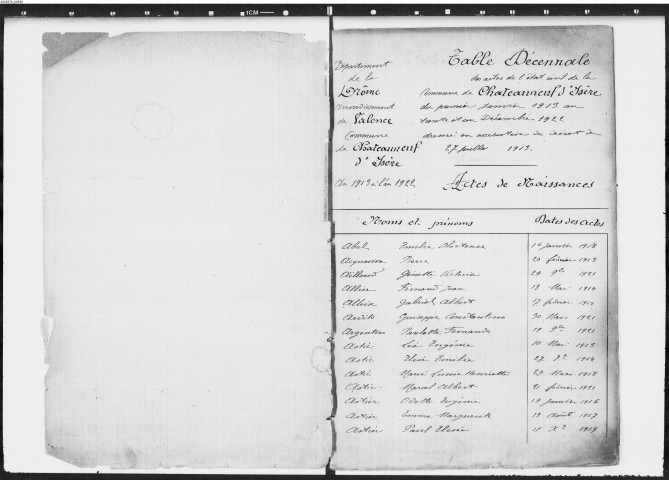 Département
de la
Drôme
Arrondissement
de Valence
Commune
de Chateauneuf
d'Isère
An 1913 à l'an 1922
Table Décennale
des actes de l'état civil de la
Commune de Chateauneuf d'Isère
du premier Janvier 1913 au
trente et un Décembre 1922
dressé en exécution du décret du
27 Juillet 1913.
Actes de Naissances
Noms et prénoms Dates des Actes
Abel Emilie Hortense Janvier 1918
Pierre 20 février 1913
Ginette Victoria 29 1921
Allier Fernand Jean 18 Mai 1914
Gabriel Albert 17 février
Giuseppe Constantino 30 Mars 1921
Paulette Fernande 19 1921
Astic Léa Eugénie 10 Mai 1913
Astic Elise Emilie 27 1914
Astic Marie Louise Henriette 29 Mars 1918
Astic Marcel Albert 21 février 1921
Astier Odette Eugénie 19 Janvier 1916
Astier Emma Marguerite 13 Août 1917
Astier Paul Elisée 11 Xe 1919
1CM